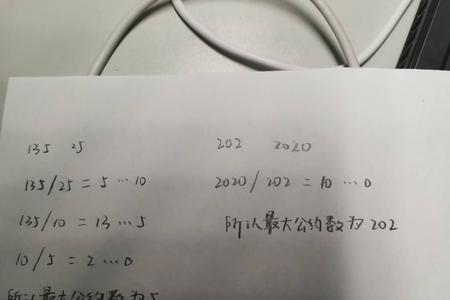 135 25
135/25 = 5 … 10
135/10 = 13 … 5
10/5 = 2 … 0
所以最大公约数为5
202 2020
2020/202 = 10 … 0
所以最大公约数为202